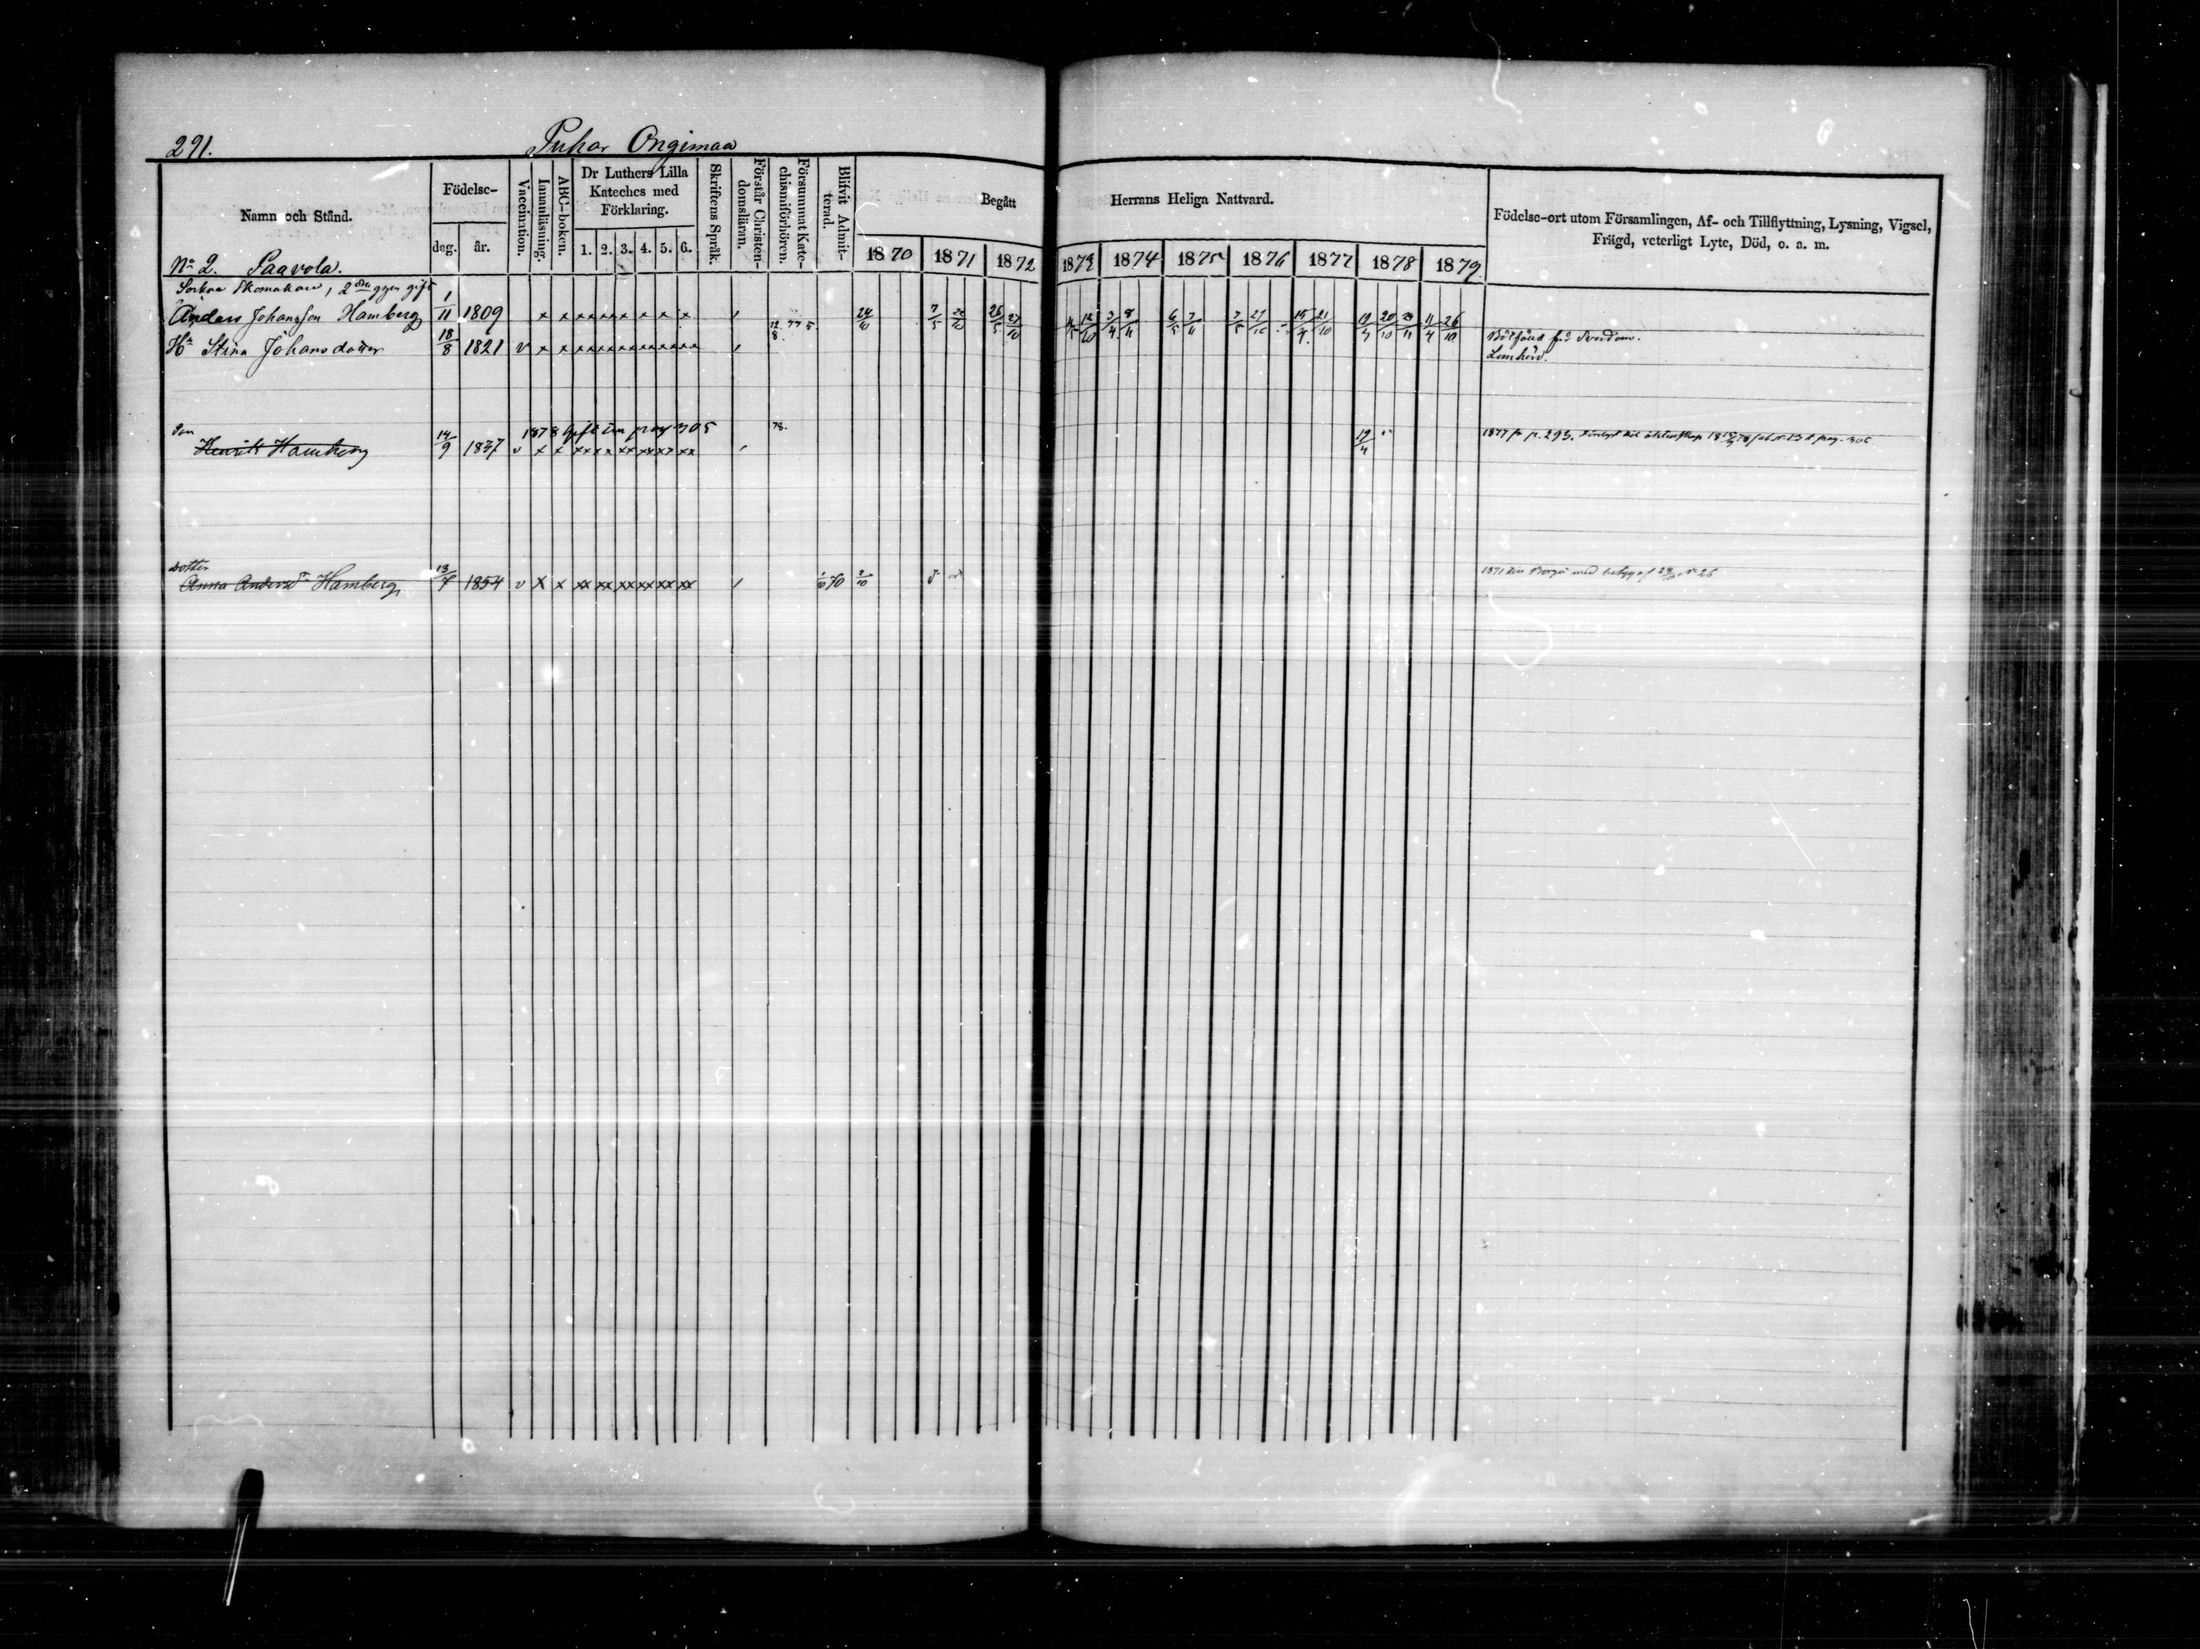 291. Puhar Ongimaa
Namn och Stånd.
Födelse-
dag. år.
Vaccination.
Innanläsning.
ABC-boken.
Dr Luthers Lilla
Kateches med
Förklaring.
1. 2. 3. 4. 5. 6.
Skriftens Språk.
Förstår Christen-
domsläran.
Försummat Kate-
chismiförhören.
Blifvit Admit-
terad.
Begått Herrans Heliga Nattvard.
1870 1871 1872 1873 1874 1875 1876 1877 1878 1879
Födelse-ort utom Församlingen, Af- och Tillflyttning, Lysning, Vigsel,
Frägd, veterligt Lyte, Död, o. a. m.
No 2. Paavola.
Sockne Skomakare, 2dra ggen gift
Anders Johansson Hamberg 1/11 1809 x x 24/10 7/5 26/5 27/10 3/4 8/11 6/5 7/11 7/5 27/10 15/4 21/10 19/4 20/10 11/4 26/10
Hu Stina Johansdotter 18/8 1821 v x x
Son 1878 gift till pag 305 78.
Henrik Hamberg 14/9 1837 v x x 19/4
1877 fr p. 293.
dotter
Anna Andersdr Hamberg 13/7 1854 v x x 1/10 70 2/10
1871 till Borgå med betyg af 28/10 No 26